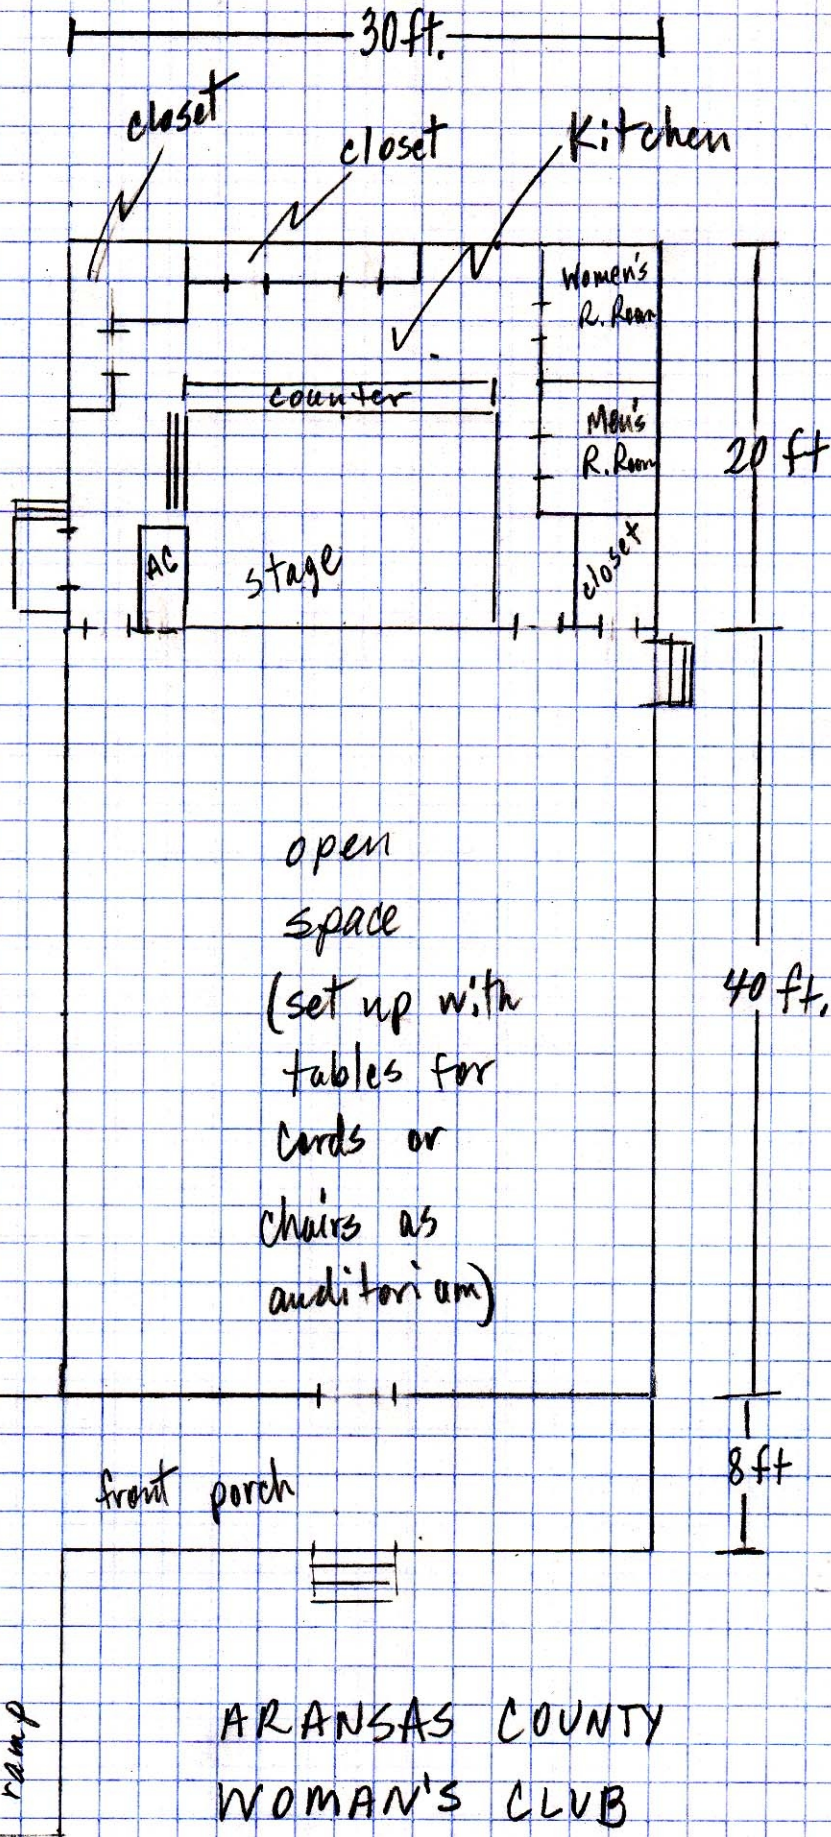 30ft.
closet
closet
Kitchen
Women's
R. Room
counter
Men's
R. Room
20 ft
AC
stage
closet
open
space
(set up with
tables for
cards or
chairs as
auditorium)
40 ft.
front porch
8ft
ramp
ARANSAS COUNTY
WOMAN'S CLUB